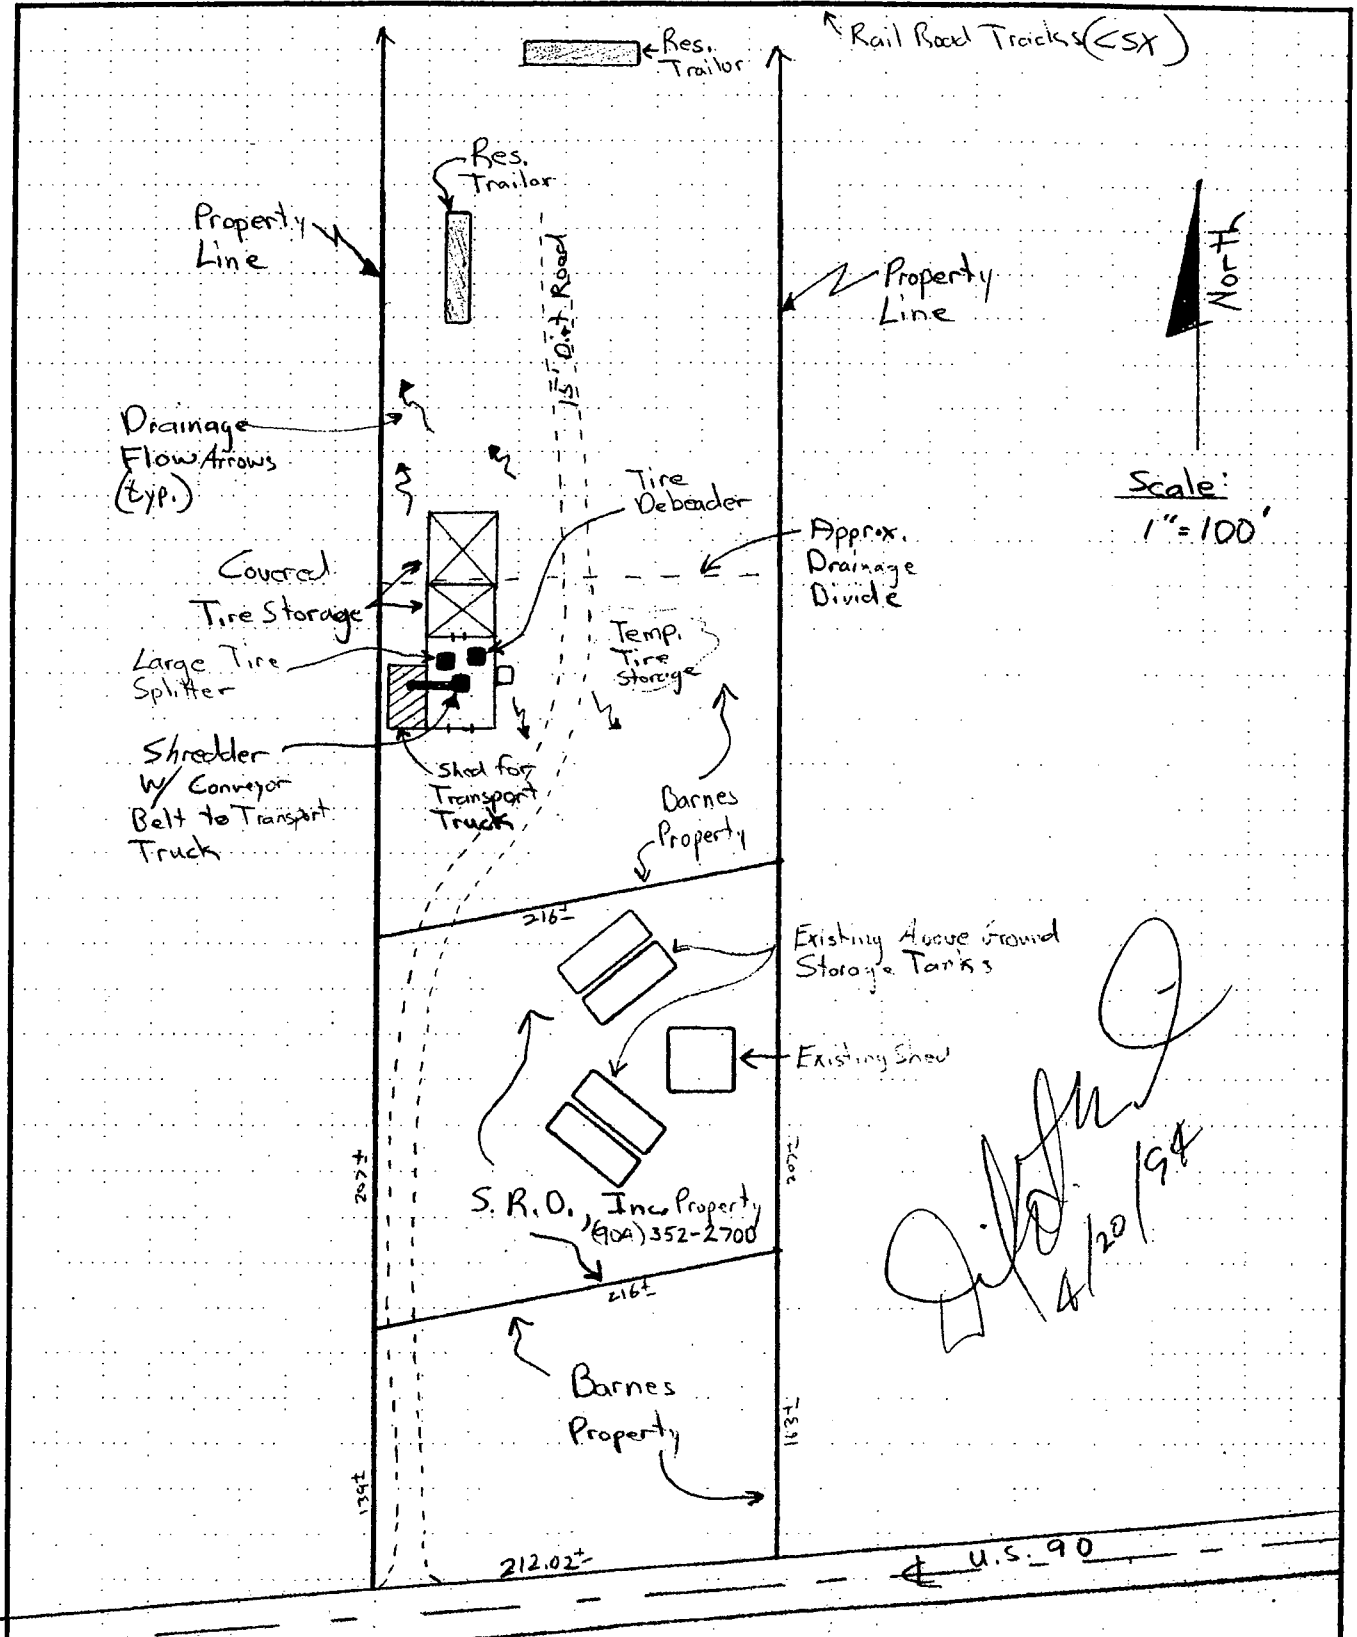 Rail Road Tracks (CSX)
Res.
Trailor
Res.
Trailor
Property
Line
15' Dirt Road
Property
Line
North
Drainage
Flow Arrows
(typ.)
Scale:
1"=100'
Tire
Debeader
Approx.
Drainage
Divide
Covered
Tire Storage
Temp.
Tire
Storage
Large Tire
Splitter
Shredder
W/ Conveyor
Belt to Transport
Truck
Shed for
Transport
Truck
Barnes
Property
216±
Existing Above Ground
Storage Tanks
Existing Shed
207±
207±
S.R.O., Inc. Property
(904) 352-2700
216±
4/20/94
Barnes
Property
163±
139±
212.02±
U.S. 90